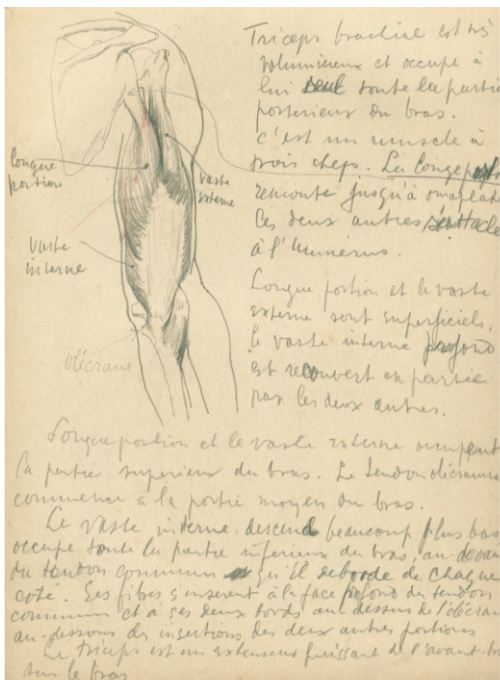 Triceps brachial est très
volumineux et occupe à
lui seul toute la partie
posterieux du bras.
c'est un muscle à
trois chefs. La longe
remonte jusqu'à omoplate
les deux autres s'attache
à l'humerus.
longue
portion
vaste
externe
vaste
interne
olécrane
Longue portion et le vaste
externe sont superficiels,
le vaste interne profond
est recouvert en partie
par les deux autres.
Longue portion et le vaste externe occupent
la partie superieux du bras. Le tendon
commence à la partie moyen du bras.
Le vaste interne descend beaucoup plus bas
occupe toute la partie inferieux du bras, au-devan
du tendon commun qu'il deborde de chaque
coté. Ses fibres s'inserent à la face profond du tendon
commun et à ses deux bords au-dessus de l'olécran
au-dessous des insertions des deux autres portions
Le triceps est un extenseur puissant de l'avant-br
sur le bras